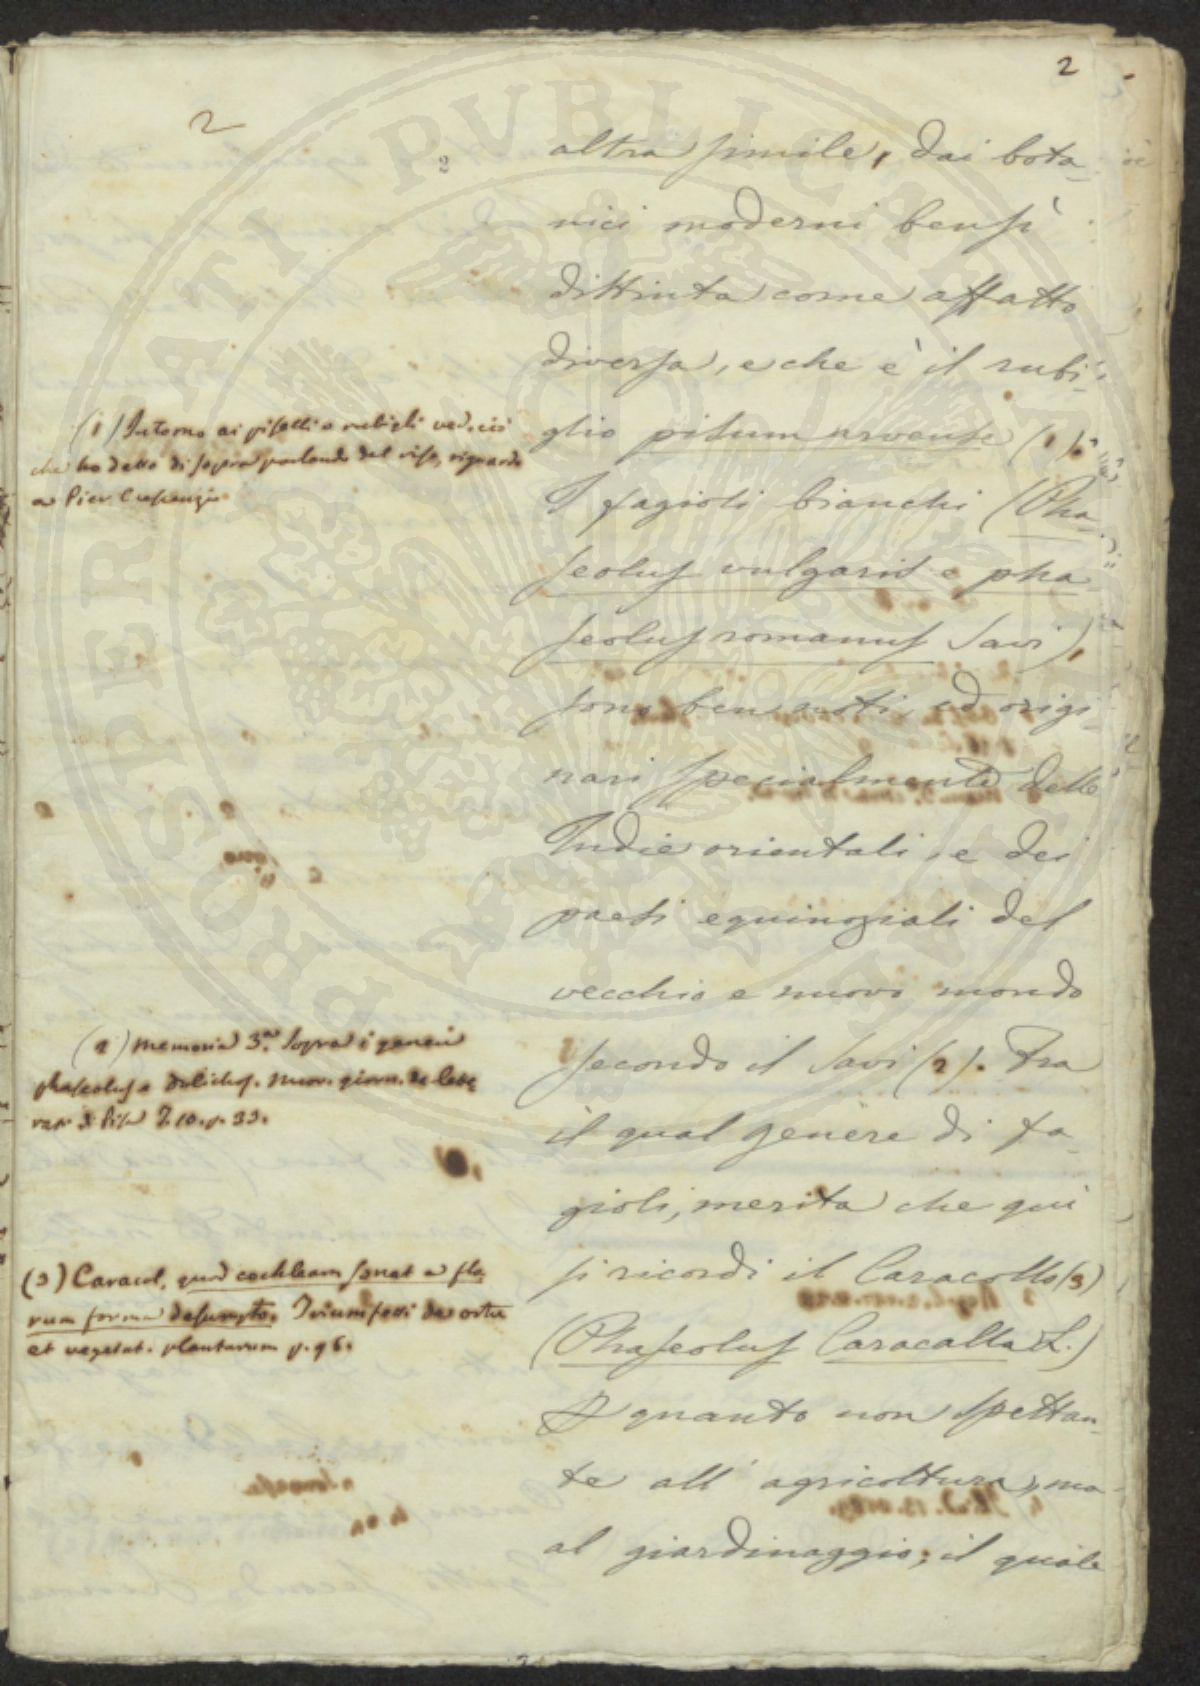 2
2
2
altra simile, dai bota-
nici moderni bensì
distinta come affatto
diversa, e che è il rubi-
glio pisum arvense (1).
I fagioli bianchi (Pha-
seolus vulgaris e pha-
seolus romanus Savi),
sono ben noti, ed origi-
nari specialmente delle
Indie orientali, e dei
paesi equinoziali del
vecchio e nuovo mondo
secondo il Savi (2). Tra
il qual genere di fa-
gioli, merita che qui
si ricordi il Caracollo (3)
(Phaseolus Caracalla L.)
quanto non spettan-
te all'agricoltura, ma
al giardinaggio; il quale
(1) Intorno ai piselli e rubigli
che ho detto di sopra parlando del riso, riguardo
a Pier Crescenzio
(2) Memoria 3.a Sopra i generi
phaseolus e dolichos. Nuov. giorn. de lette
rat. di Pisa T. 10. p. 33.
(3) Caracol, quod cochleam sonat a flo
rum forma desumpto. Triumfetti de ortu
et vegetat. plantarum p. 96.
PROSPERITATI PVBLICAE